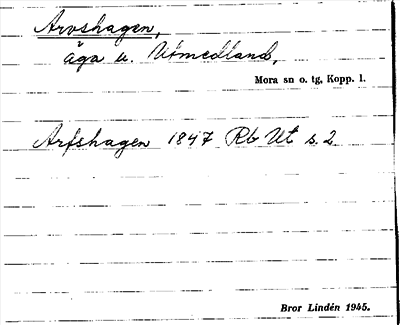 Arvshagen,
äga u. Utmedland,
Mora sn o. tg, Kopp. l.
Arfshagen 1847 Rb Ut s. 2
Bror Lindén 1945.